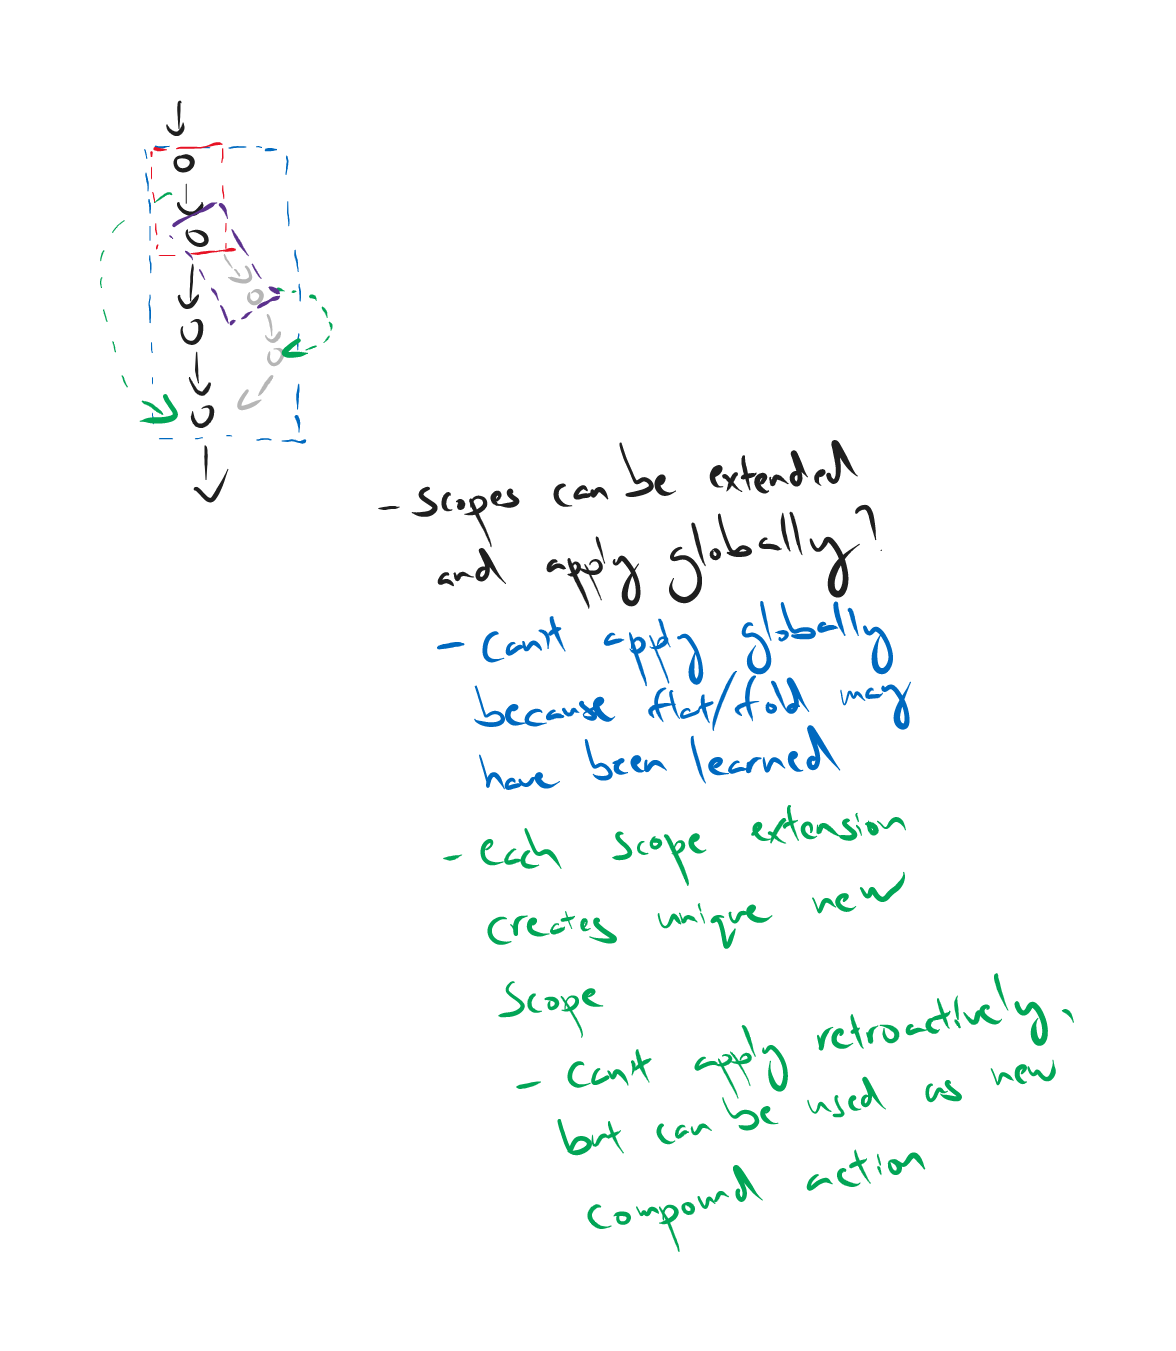 - Scopes can be extended
and apply globally?
- Can't apply globally
because flat/fold may
have been learned
- each scope extension
creates unique new
Scope
- Can't apply retroactively,
but can be used as new
compound action